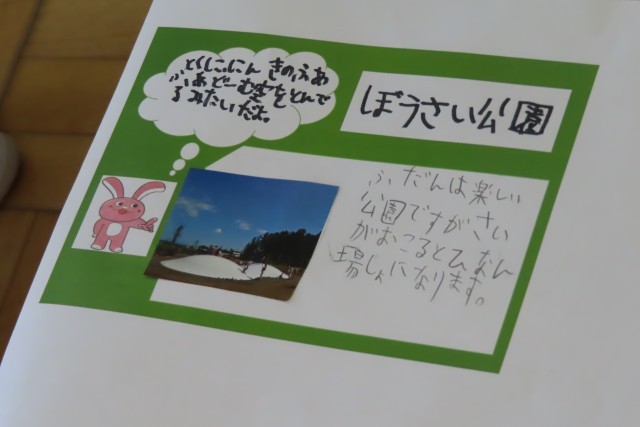 ぼうさい公園
とくに にん きのふあ
ふぁどーむ空をとんで
るみたいだよ。
ふだんは楽しい
公園ですがさい
がおこるとひなん
場しょになります。